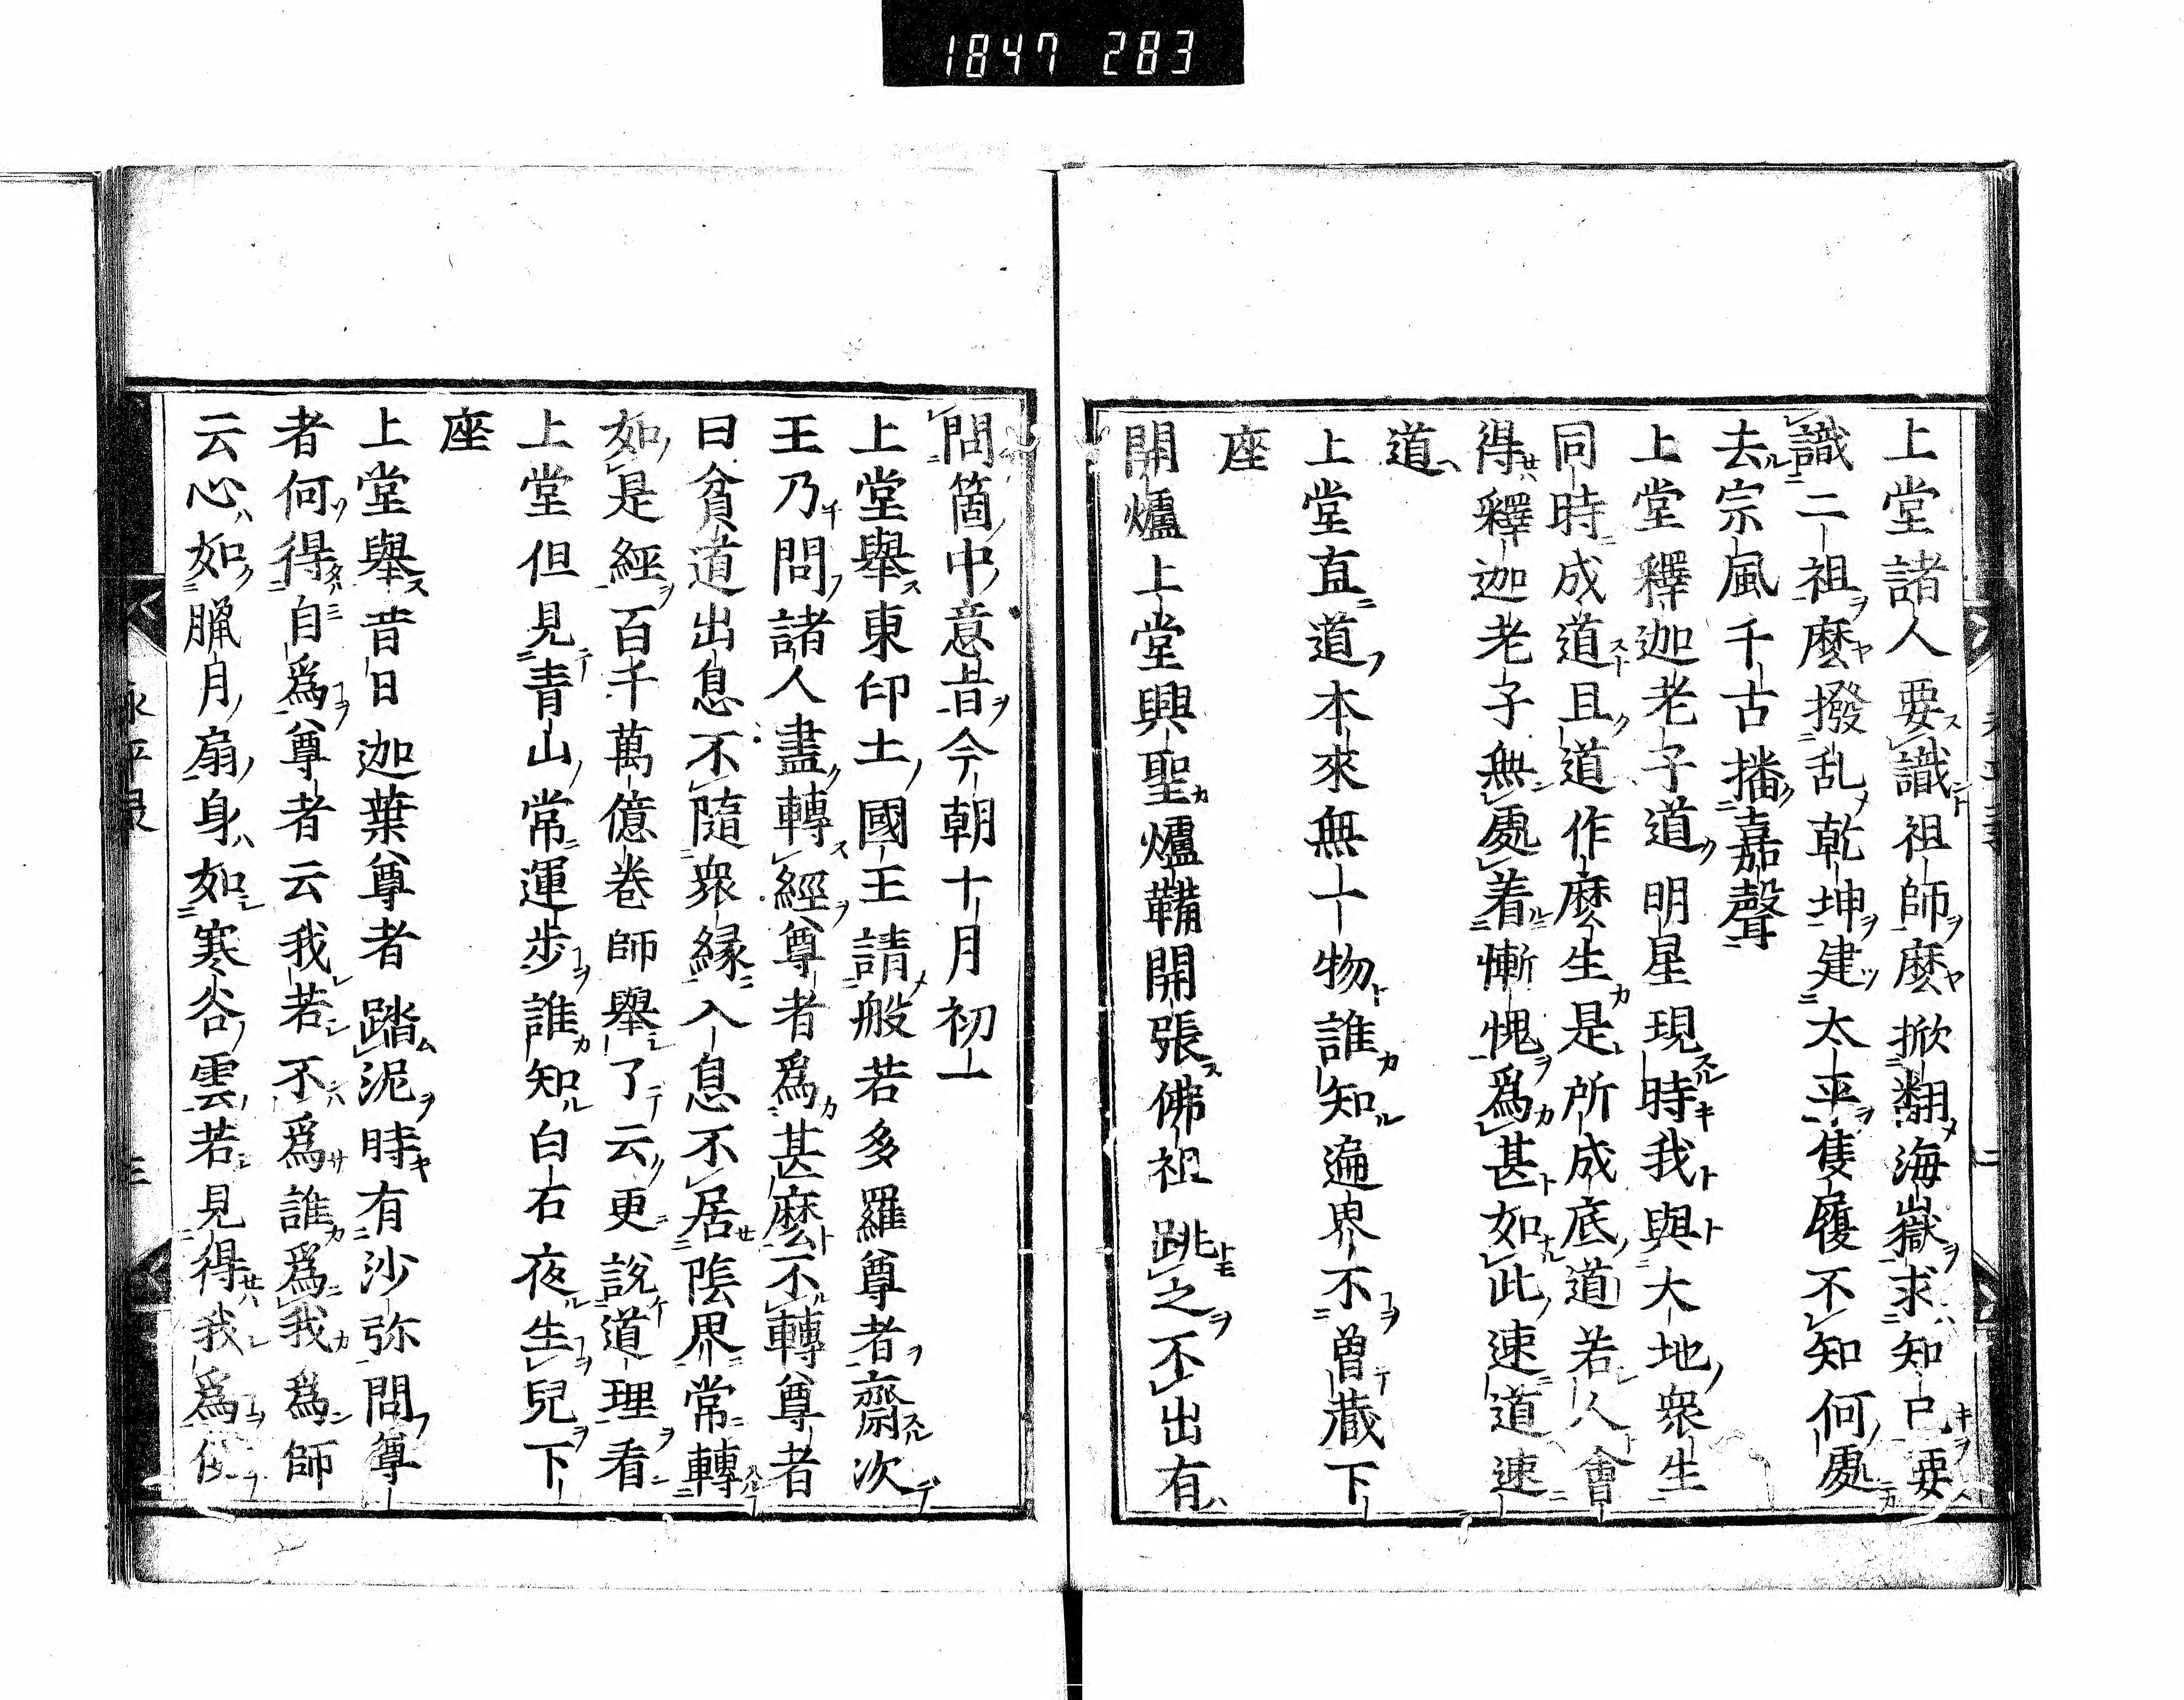 1847 283
上堂諸人要識祖師麼掀翻海嶽求知己要
識二祖麼撥乱乾坤建太平隻履不知何處
去宗風千古播嘉聲
上堂釋迦老子道明星現時我與大地衆生
同時成道且道作麼生是所成底道若人會
得釋迦老子無處着慚愧爲甚如此速道速
道
上堂直道本來無一物誰知遍界不曽藏下
座
開爐上堂興聖爐鞴開張佛祖跳之不出有
問箇中意旨今朝十月初一
上堂舉東印土國王請般若多羅尊者齋次
王乃問諸人盡轉經尊者爲甚麼不轉尊者
曰貧道出息不隨衆緣入息不居陰界常轉
如是經百千萬億卷師舉了云更說道理看
上堂但見青山常運步誰知白石夜生兒下
座
上堂舉昔日迦葉尊者踏泥時有沙弥問尊
者何得自爲尊者云我若不爲誰爲我爲師
云心如臘月扇身如寒谷雲若見得我爲